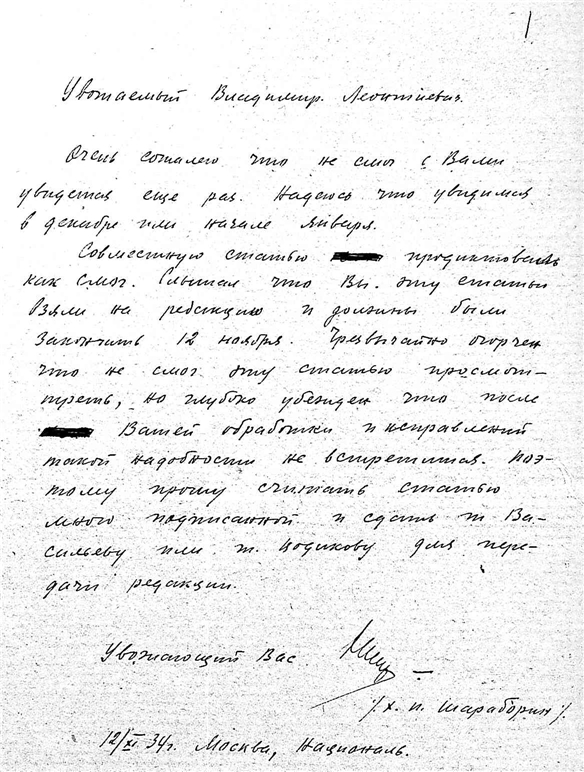 1
Уважаемый Владимир Леонтиевич.
Очень сожалею что не смог с Вами
увидется еще раз. Надеюсь что увидимся
в декабре или начале января.
Совместную статью продиктовать
как смог. Слышал что Вы эту статью
взяли на редакцию и должны были
закончить 12 ноября. Чрезвычайно огорчен
что не смог эту статью просмот-
треть, но глубоко убежден что после
Вашей обработки и исправлений
такой надобности не встретится. Поэ-
тому прошу считать статью
мною подписанной и сдать т. Ва-
сильеву или т. Цодикову для пере-
дачи редакции.
Уважающий Вас
/Х. П. Шараборин/.
12/XI 34 г. Москва, Националь.